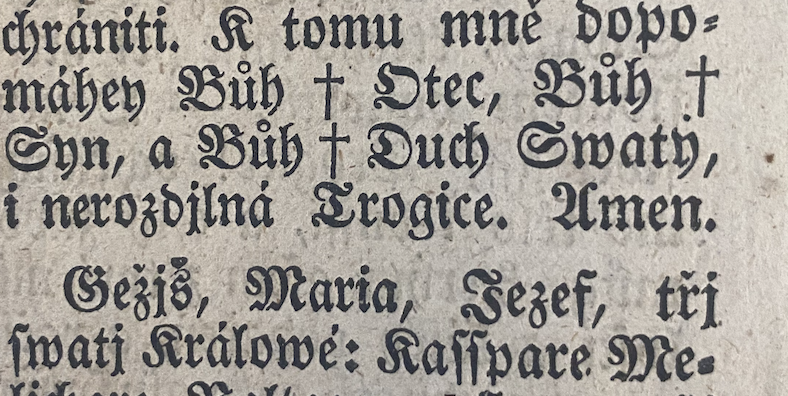 chrániti. K tomu mně dopo⸗
máhey Bůh † Otec, Bůh †
Syn, a Bůh † Duch Swatý,
i nerozdjlná Trogice. Amen.
Gežjš, Maria, Jezef, třj
ſwatj Králowé: Kaſſpare Me⸗